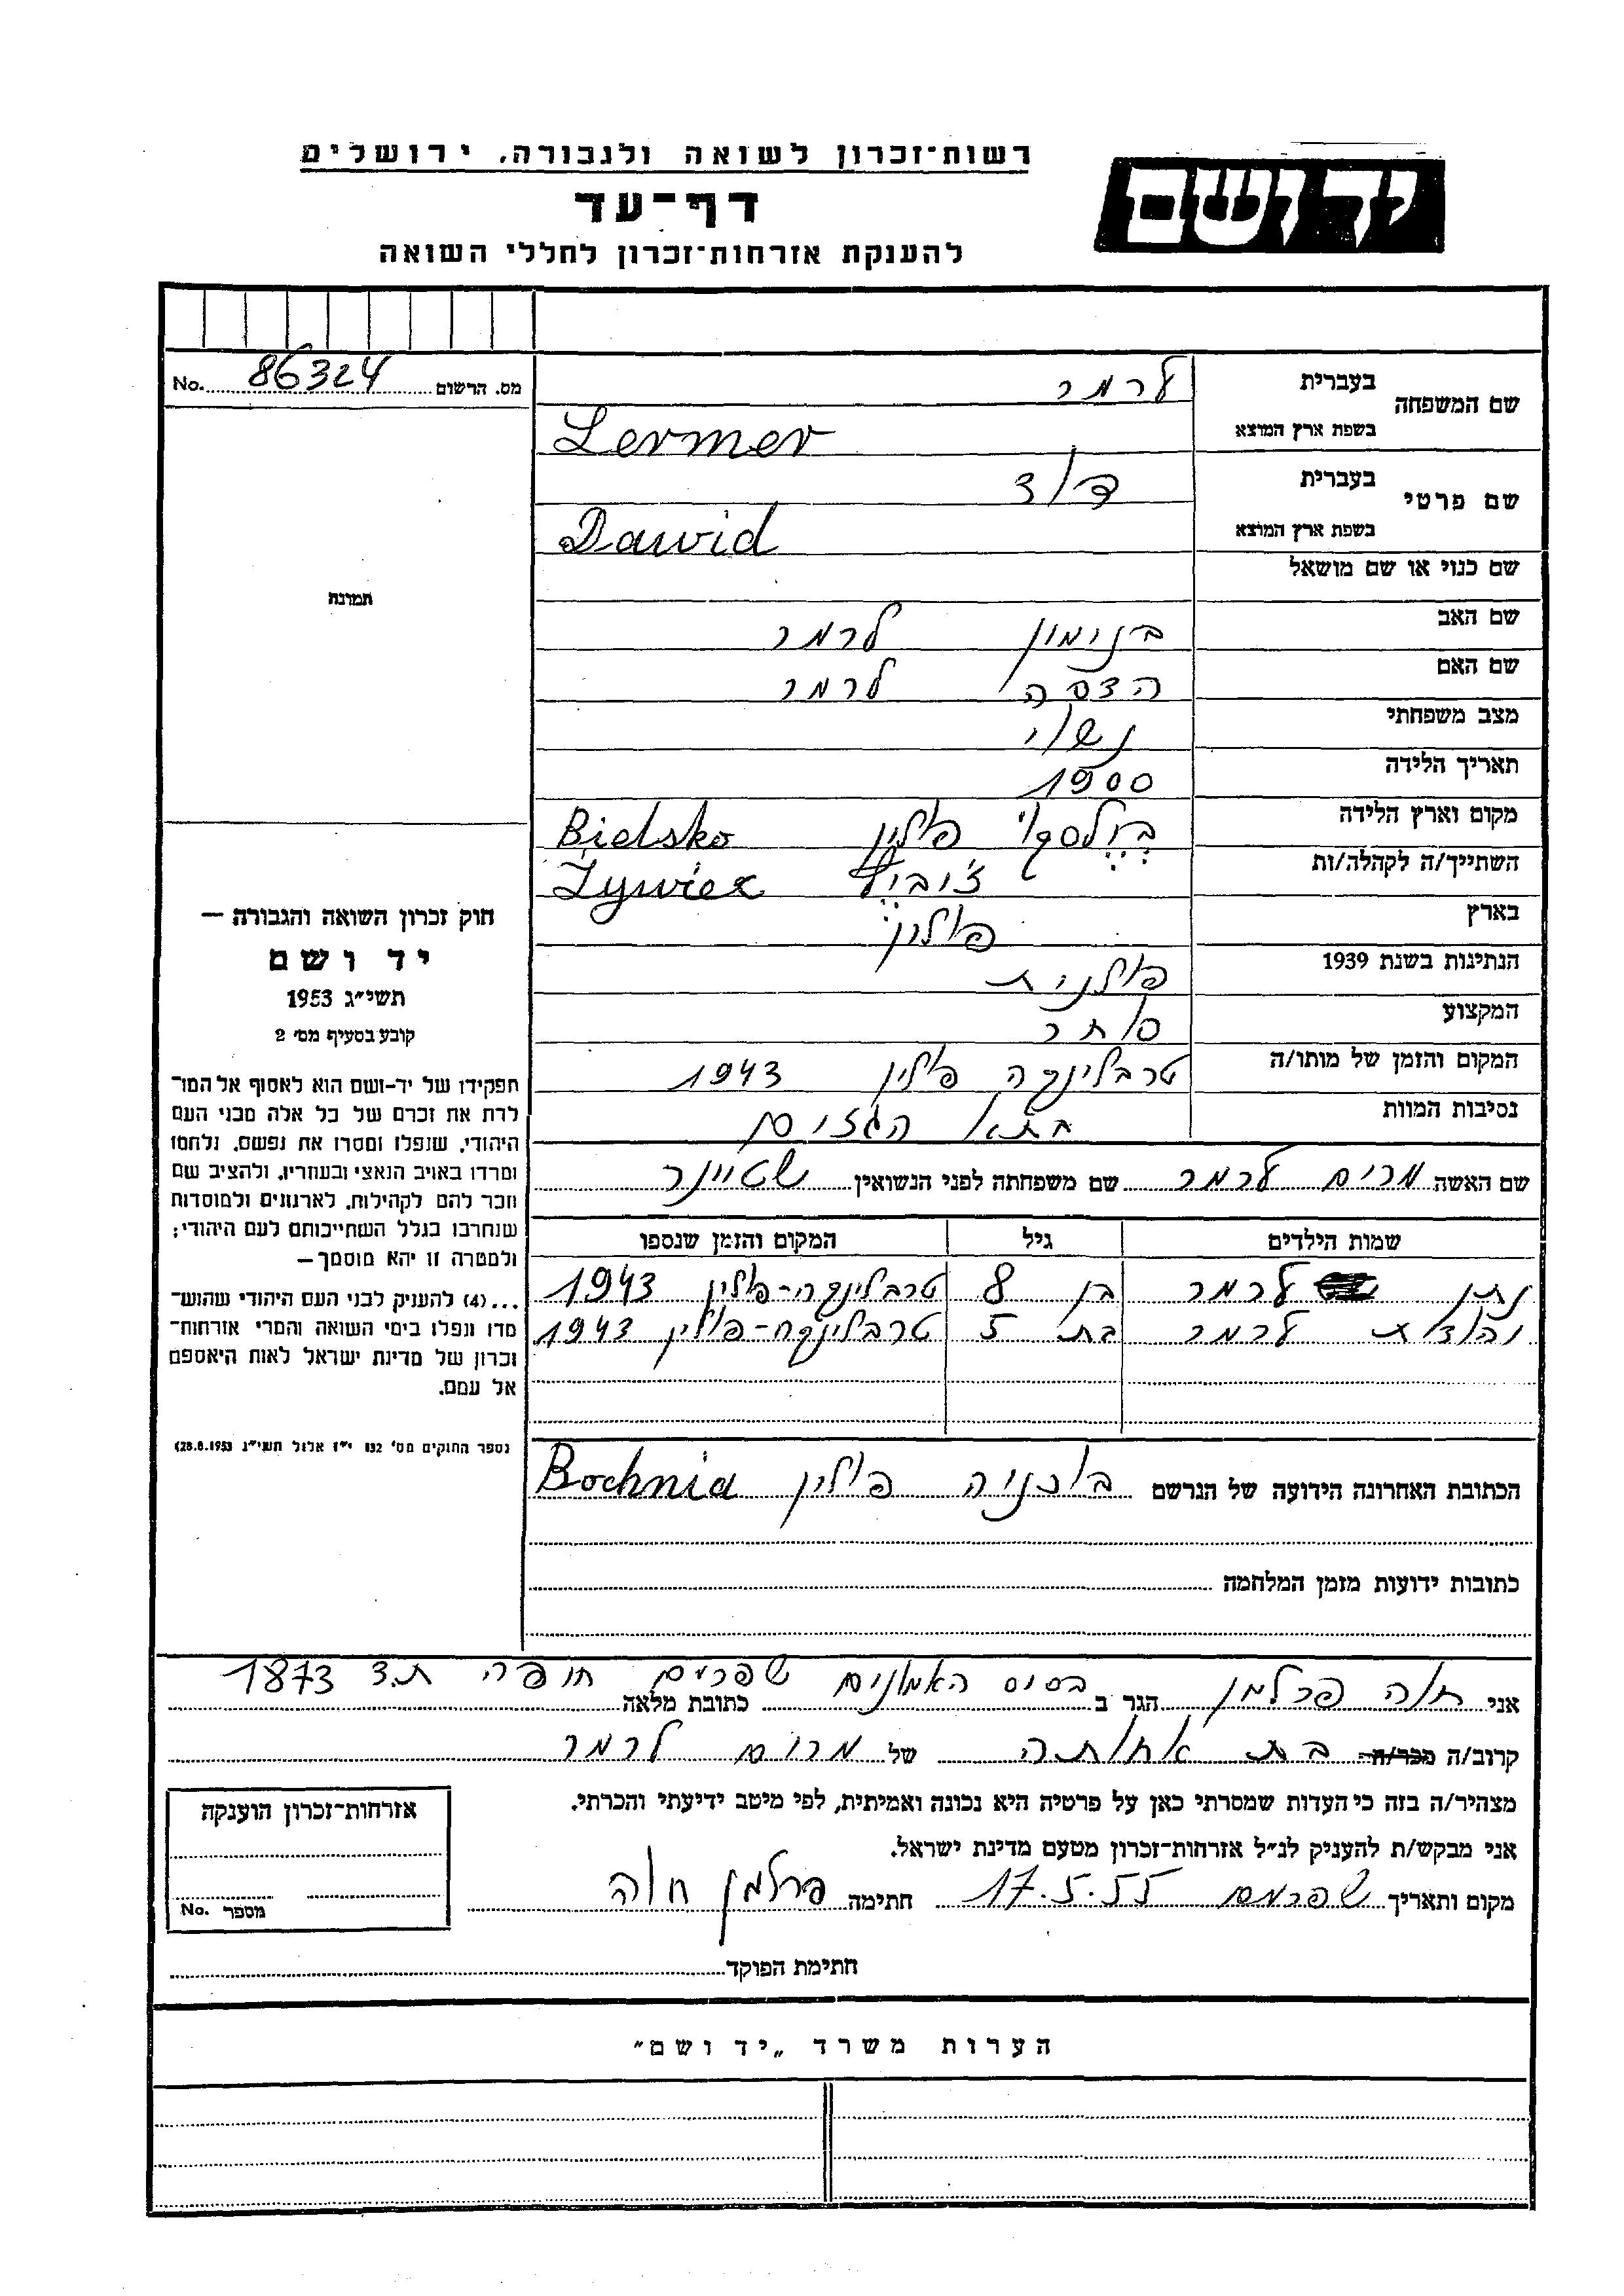 יד ושם
רשות־זכרון לשואה ולגבורה, ירושלים
דף־עד
להענקת אזרחות־זכרון לחללי השואה
מס. הרשום 86324 No.
תמונה
שם המשפחה
בעברית לרמר
בשפת ארץ המוצא Lermer
שם פרטי
בעברית דוד
בשפת ארץ המוצא Dawid
שם כנוי או שם מושאל
שם האב בנימין לרמר
שם האם הדסה לרמר
מצב משפחתי נשוי
תאריך הלידה 1900
מקום וארץ הלידה פולין Bielsko
השתייך/ה לקהלה/ות Żywiec
בארץ פולין
הנתינות בשנת 1939 פולנית
המקצוע סוחר
המקום והזמן של מותו/ה טרבלינקה פולין 1943
נסיבות המוות בתא הגזים
שם האשה מרים לרמר שם משפחתה לפני הנשואין שטיינר
שמות הילדים גיל המקום והזמן שנספו
נתן לרמר בן 8 טרבלינקה-פולין 1943
יהודית לרמר בת 5 טרבלינקה-פולין 1943
הכתובת האחרונה הידועה של הנרשם בוכניה פולין Bochnia
כתובות ידועות מזמן המלחמה
חוק זכרון השואה והגבורה —
יד ושם
תשי״ג 1953
קובע בסעיף מס׳ 2
תפקידו של יד-ושם הוא לאסוף אל המו־
לדת את זכרם של כל אלה מבני העם
היהודי, שנפלו ומסרו את נפשם, נלחמו
ומרדו באויב הנאצי ובעוזריו, ולהציב שם
וזכר להם לקהילות, לארגונים ולמוסדות
שנחרבו בגלל השתייכותם לעם היהודי;
ולמטרה זו יהא מוסמך—
...(4) להעניק לבני העם היהודי שהוש־
מדו ונפלו בימי השואה והמרי אזרחות־
זכרון של מדינת ישראל לאות היאספם
אל עמם.
(ספר החוקים מס׳ 132 י״ז אלול תשי״ג 28.8.1953)
אני חוה פרלמן הגר ב בסיס האמונים שפרים כתובת מלאה חיפה ת.ד 1873
קרוב/ה מכר/ה בת אחותה של מרים לרמר
מצהיר/ה בזה כי העדות שמסרתי כאן על פרטיה היא נכונה ואמיתית, לפי מיטב ידיעתי והכרתי.
אני מבקש/ת להעניק לנ״ל אזרחות־זכרון מטעם מדינת ישראל.
מקום ותאריך שפרים 17.5.55 חתימה פרלמן חוה
חתימת הפוקד
אזרחות־זכרון הוענקה
מספר No.
הערות משרד „יד ושם״